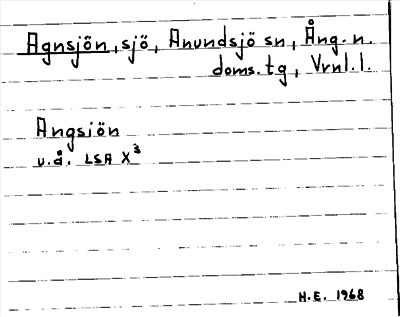 Agnsjön, sjö, Anundsjö sn, Ång. n.
doms. tg, Vrnl. l.
Angsjön
u.å. LSA X³
H.E. 1968